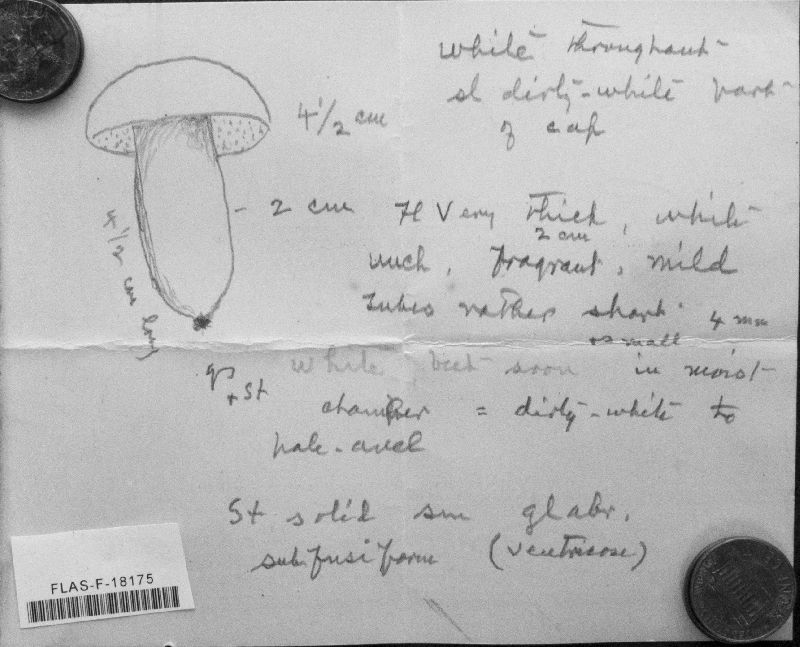 white throughout
sl dirty-white part
of cap
4 1/2 cm
2 cm
Fl Very thick, white
2 cm
unch, fragrant, mild
4 1/2 cm long
Tubes rather short 4 mm
& small
white, but soon in moist
+ St
chamber = dirty-white to
pale-avel
St solid sm glabr.
subfusiform (ventricose)
FLAS-F-18175